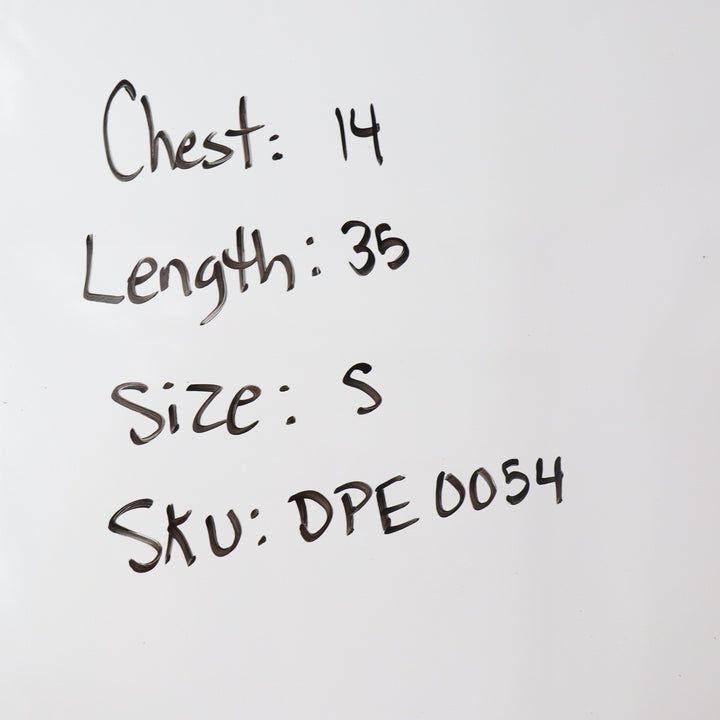 Chest: 14
Length: 35
Size: S
SKU: DPE 0054